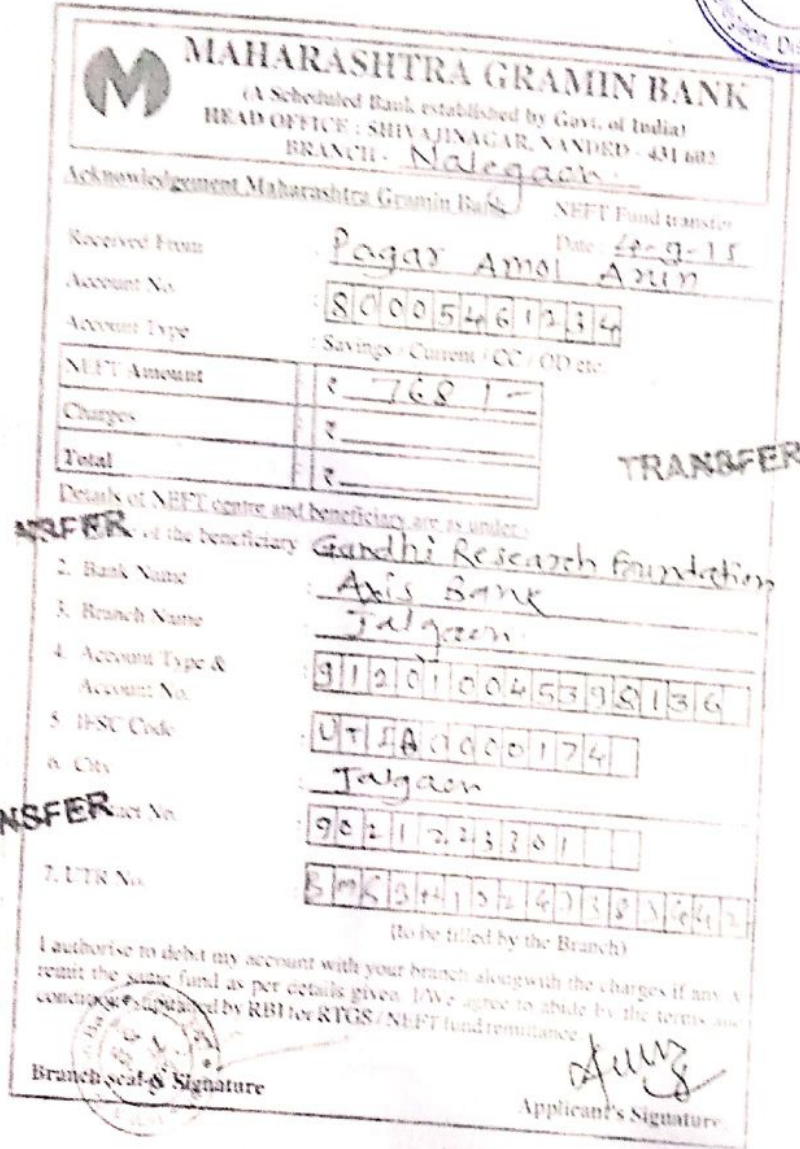 MAHARASHTRA GRAMIN BANK
(A Scheduled Bank established by Govt. of India)
HEAD OFFICE : SHIVAJINAGAR, NANDED - 431 602
BRANCH - Nalegaon
Acknowledgement Maharashtra Gramin Bank NEFT Fund transfer
Date :
Received From : Pagar Amol Arun
Account No. : 80005461234
Account Type : Savings / Current / CC / OD etc.
NEFT Amount : ₹ 768/-
Charges : ₹
Total : ₹
TRANSFER
Details of NEFT centre and beneficiary are as under :
of the beneficiary Gandhi Research Foundation
2. Bank Name : Axis Bank
3. Branch Name : Jalgaon
4. Account Type &
Account No. : 912010045398136
5. IFSC Code : UTIB0000174
6. City : Jalgaon
No. : 9021223301
7. UTR No.
(to be filled by the Branch)
I authorise to debit my account with your branch alongwith the charges if any
remit the same fund as per details given. I/We agree to abide by the terms and
by RBI for RTGS / NEFT fund remittance.
Branch seal & Signature
Applicant's Signature